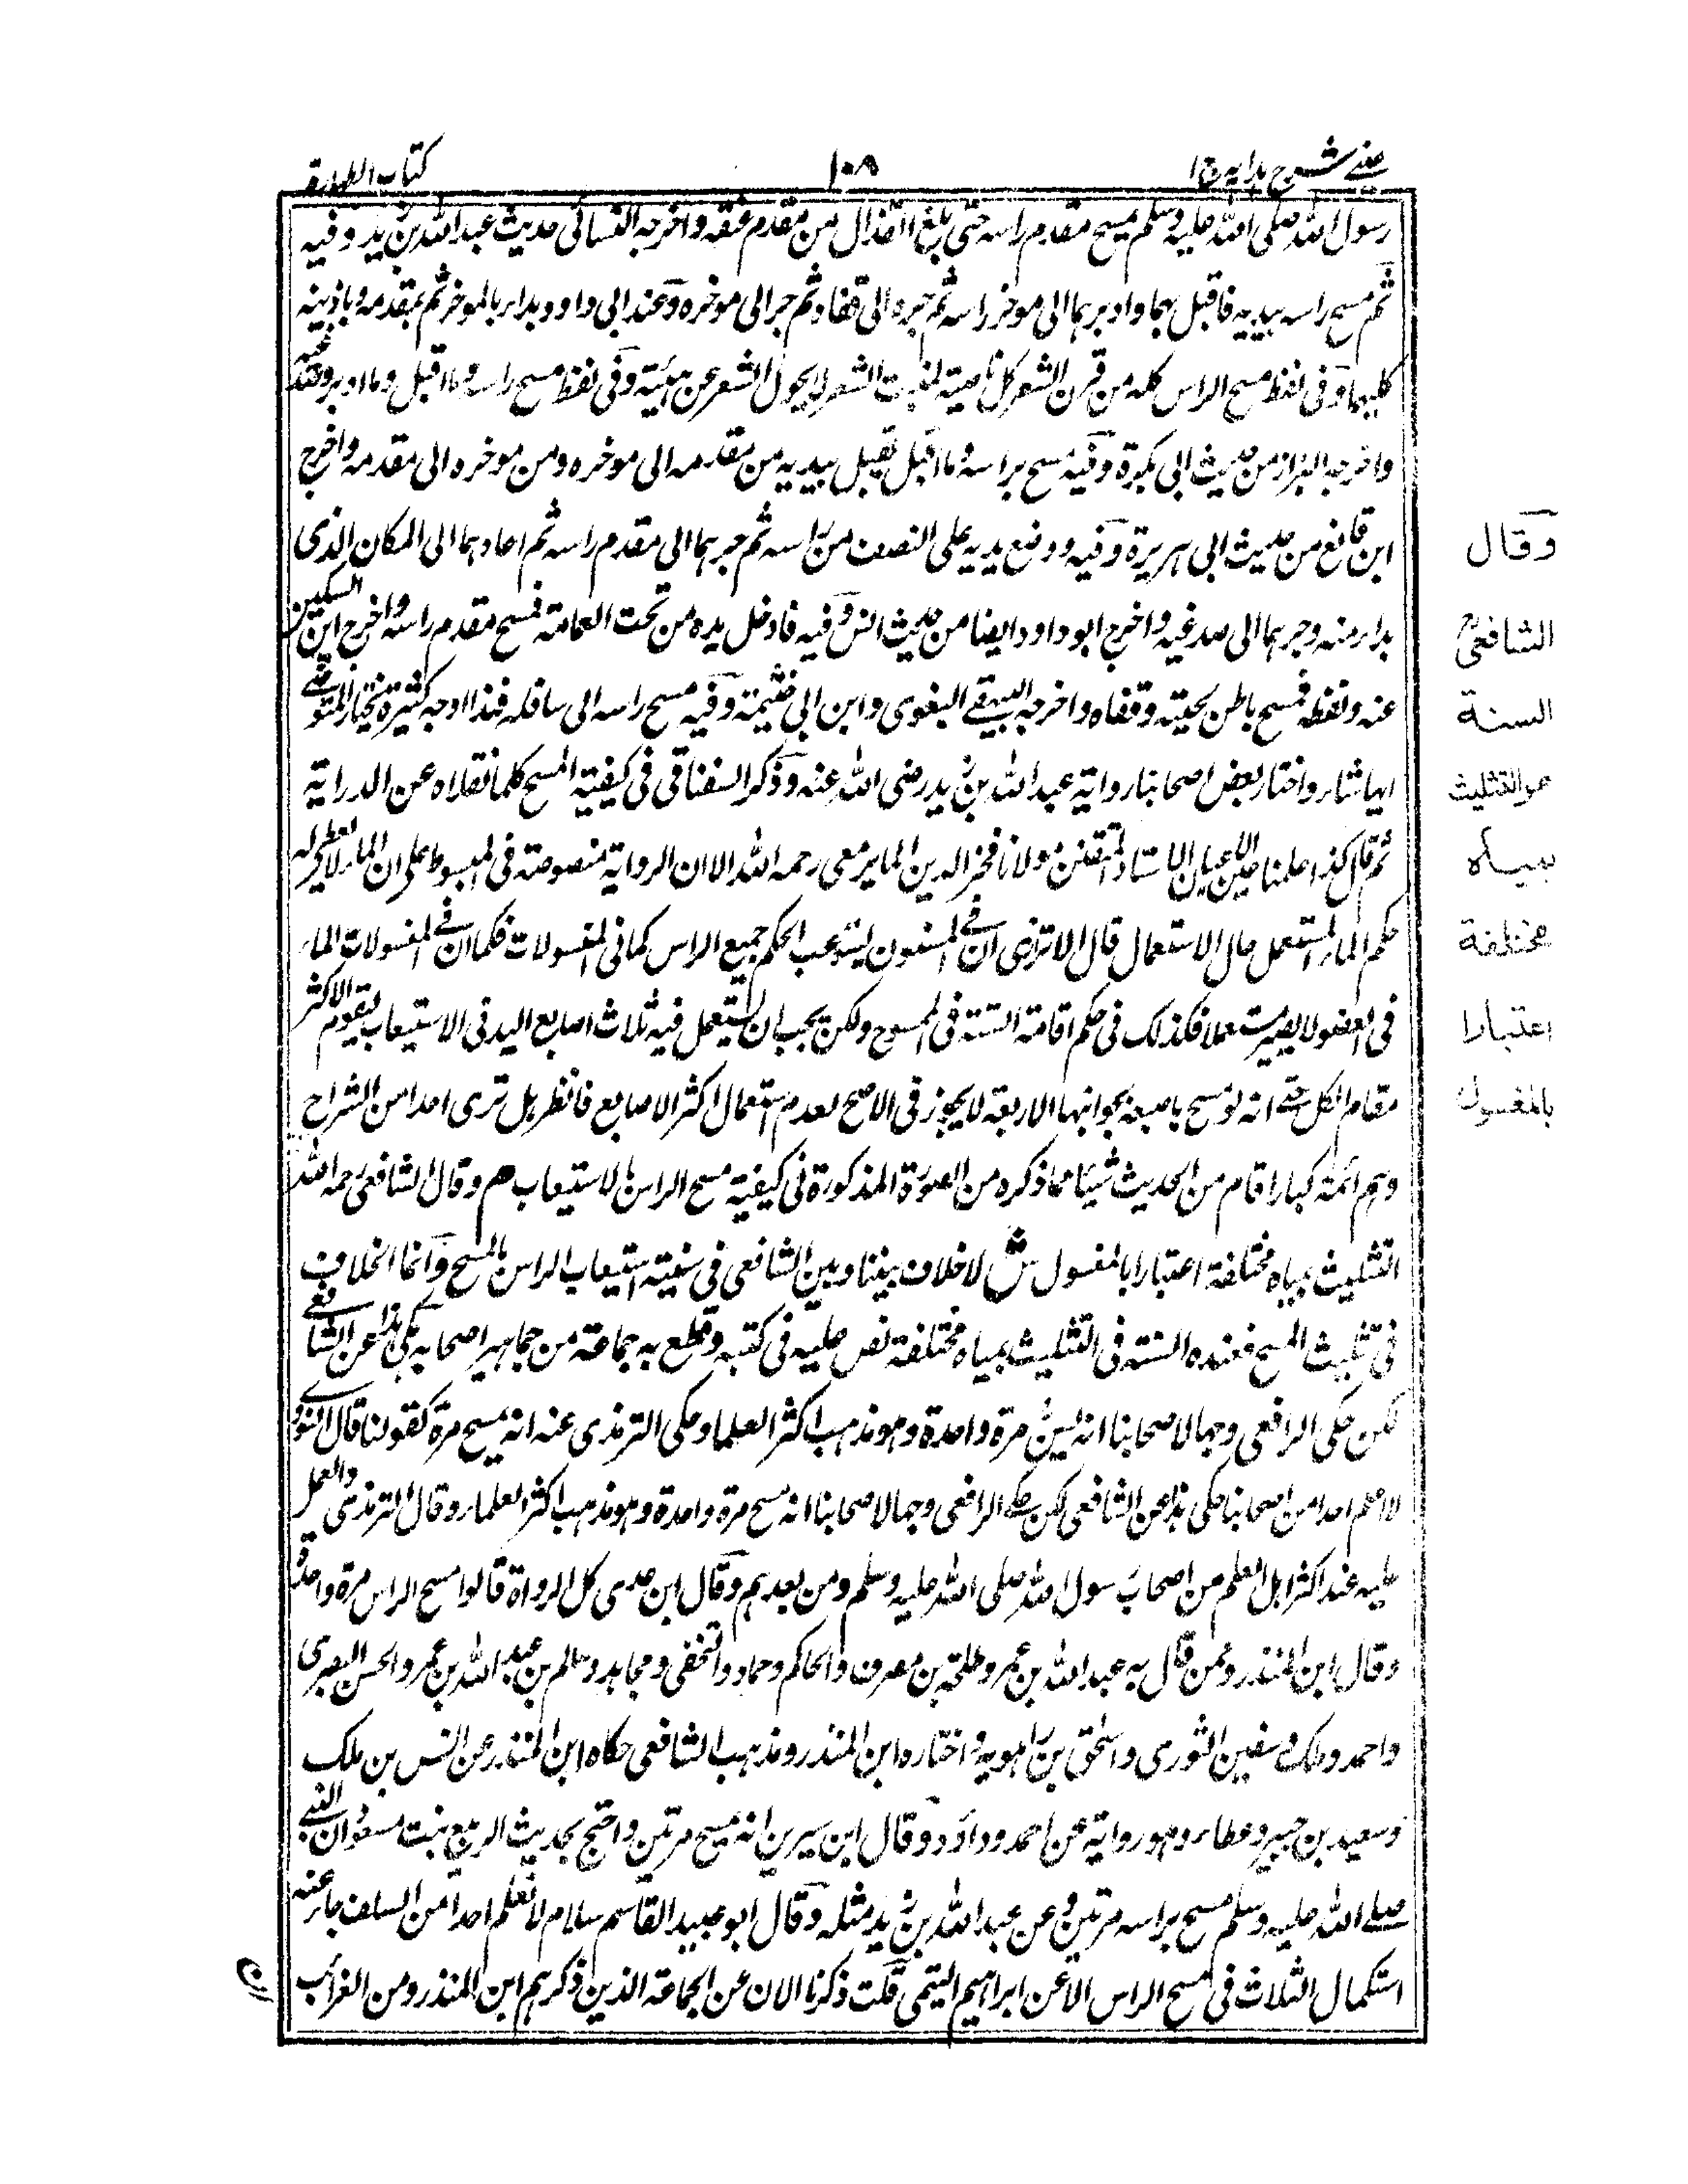 عینے شرح ہدایہ ج ١
١٠٨
کتاب الطہارة
رسول الله صلى الله عليه وسلم يمسح مقدم راسه حتى بلغ القذال من مقدم عنقه واخرجه النسائى حديث عبد الله بن زيد وفيه
ثم مسح راسه بيديه فاقبل بهما وادبر بهما الى موخر راسه ثم جره الى قفاه ثم جر الى موخره وعند ابى داود بدا بالموخر ثم بمقدمه وباذنيه
كليهما وفى لفظ مسح الراس كله من قرن الشعر كل ناصية لمنبت الشعر لا يحول الشعر عن هيئته وفى لفظ مسح راسه وما اقبل وما ادبر وصدغيه
واخرجه البزار من حديث ابى بكرة وفيه مسح براسه وما اقبل يقبل بيديه من مقدمه الى موخره ومن موخره الى مقدمه واخرج
ابن قانع من حديث ابى هريرة وفيه ووضع يديه على النصف من راسه ثم جرهما الى مقدم راسه ثم اعادهما الى المكان الذى
بدا منه وجرهما الى صدغيه واخرج ابو داود ايضا من حديث انس وفيه فادخل يده من تحت العمامة فمسح مقدم راسه واخرج ابن السكين
عنه ولفظه فمسح باطن لحيته وقفاه واخرجه البيهقے البغوى وابن ابى خثيمة وفيه مسح راسه الى سالفه فهذا اوجه كثيرة يختار المتوضے
ايها شاء واختار بعض اصحابنا رواية عبد الله بن زيد رضى الله عنه وذكر السغناقى فى كيفية المسح كلما نقلاه عن الدراية
ثم قال كذا علمنا عين الاعيان الاستاذ المتقن مولانا فخر الدين المايمرغى رحمه الله الا ان الرواية منصوصة فى المبسوط على ان الماء لا يعطى له
حكم الماء المستعمل حال الاستعمال قال الاترازى ان فے المسنون يستوعب الحكم جميع الراس كما فى المغسولات فكما ان فے المغسولات الماء
فى العضو لا يصير مستعملا فكذلك فى حكم اقامة السنة فى الممسوح ولكن يجب ان يستعمل فيه ثلاث اصابع اليد فى الاستيعاب ليقوم الاكثر
مقام الكل حتے انه لو مسح باصبعه بجوانبها الاربعة لا يجوز فى الاصح لعدم استعمال اكثر الاصابع فانظر هل ترى احدا من الشراح
وهم ائمة كبار اقام من الحديث شيئا مما ذكره من الصورة المذكورة فى كيفية مسح الراس بالاستيعاب م وقال الشافعى رحمه الله
التثليث بمياه مختلفة اعتبارا بالمغسول ش لا خلاف بيننا وبين الشافعى فى سنية استيعاب الراس بالمسح وانما الخلاف
فى تثليث المسح فعنده السنة فى التثليث بمياه مختلفة نص عليه فى كتبه وقطع به جماعة من جماهير اصحابه يحكى هذا عن الشافعے
لكن حكى الرافعى وجها لاصحابنا انه يسن مرة واحدة وهو مذهب اكثر العلما وحكى الترمذى عنه انه يمسح مرة كقولنا قال النووے
لا اعلم احدا من اصحابنا حكى هذا عن الشافعى لكن حكے الرافعى وجها لاصحابنا انه مسح مرة واحدة وهو مذهب اكثر العلماء وقال الترمذى والعمل
عليه عند اكثر اهل العلم من اصحاب رسول الله صلى الله عليه وسلم ومن بعدهم وقال ابن عدى كل الرواة قالوا مسح الراس مرة واحدة
وقال ابن المنذر وممن قال به عبد الله بن عمر وطلحة بن مصرف والحاكم وحماد والنخعى ومجاهد وسالم بن عبد الله بن عمر والحسن البصرى
واحمد وملك وسفين الثورى واسحق بن راهويه واختاره ابن المنذر ومذهب الشافعى حكاه ابن المنذر عن انس بن ملك
وسعيد بن جبير وعطاء وهو رواية عن احمد وداؤد وقال ابن سيرين انه يمسح مرتين واحتج بحديث الربيع بنت مسعود ان النبے
صلے الله عليه وسلم مسح براسه مرتين وعن عبد الله بن زيد مثله وقال ابو عبيد القاسم سلام لا نعلم احدا من السلف جاء عنه
استكمال الثلاث فى مسح الراس الا عن ابراهيم التيمى قلت ذكرنا الان عن الجماعة الذين ذكرهم ابن المنذر ومن الغرائب
وقال
الشافعیؒ
السنة
هو التثليث
بمياه
مختلفة
اعتبارا
بالمغسول